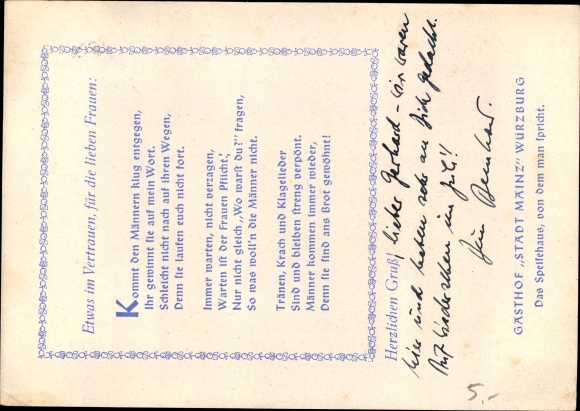 Etwas im Vertrauen, für die lieben Frauen:
Kommt den Männern klug entgegen,
Ihr gewinnt sie auf mein Wort.
Schleicht nicht nach auf ihren Wegen,
Denn sie laufen euch nicht fort.
Immer warten, nicht verzagen,
Warten ist der Frauen Pflicht,
Nur nicht gleich „Wo warst du?" fragen,
So was woll'n die Männer nicht.
Tränen, Krach und Klagelieder
Sind und bleiben streng verpönt.
Männer kommen immer wieder,
Denn sie sind ans Brot gewöhnt!
Herzlichen Gruß! lieber Gerhard - wir waren
hier und haben sehr an Dich gedacht.
Auf Wiedersehen im Juli!
Dein
GASTHOF „STADT MAINZ" WÜRZBURG
Das Speisehaus, von dem man spricht.
5,-